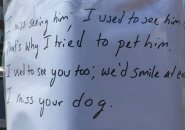 I miss seeing him, I used to see him
That's why I tried to pet him.
I used to see you too; we'd smile at e
I miss your dog.